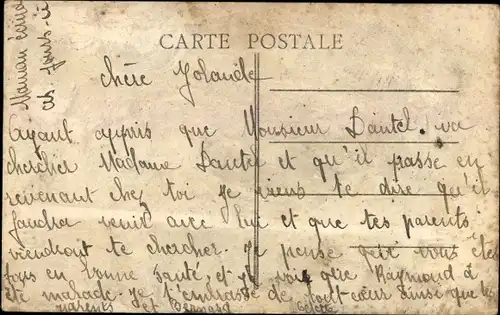 CARTE POSTALE
Maman écrira
ces jours-ci
chère Yolande
Ayant appris que Monsieur Dantel. va
chercher Madame Dantel et qu'il passe en
revenant chez toi je viens te dire qu'il
faudra venir avec lui et que tes parents
viendront te chercher. Je pense que vous êtes
tous en bonne santé et je vois que Raymond à
été malade. Je t'embrasse de tout cœur ainsi que tes
parents et Bernard